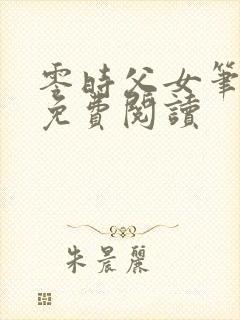 零時父女筆
免費閱讀
朱晨麗